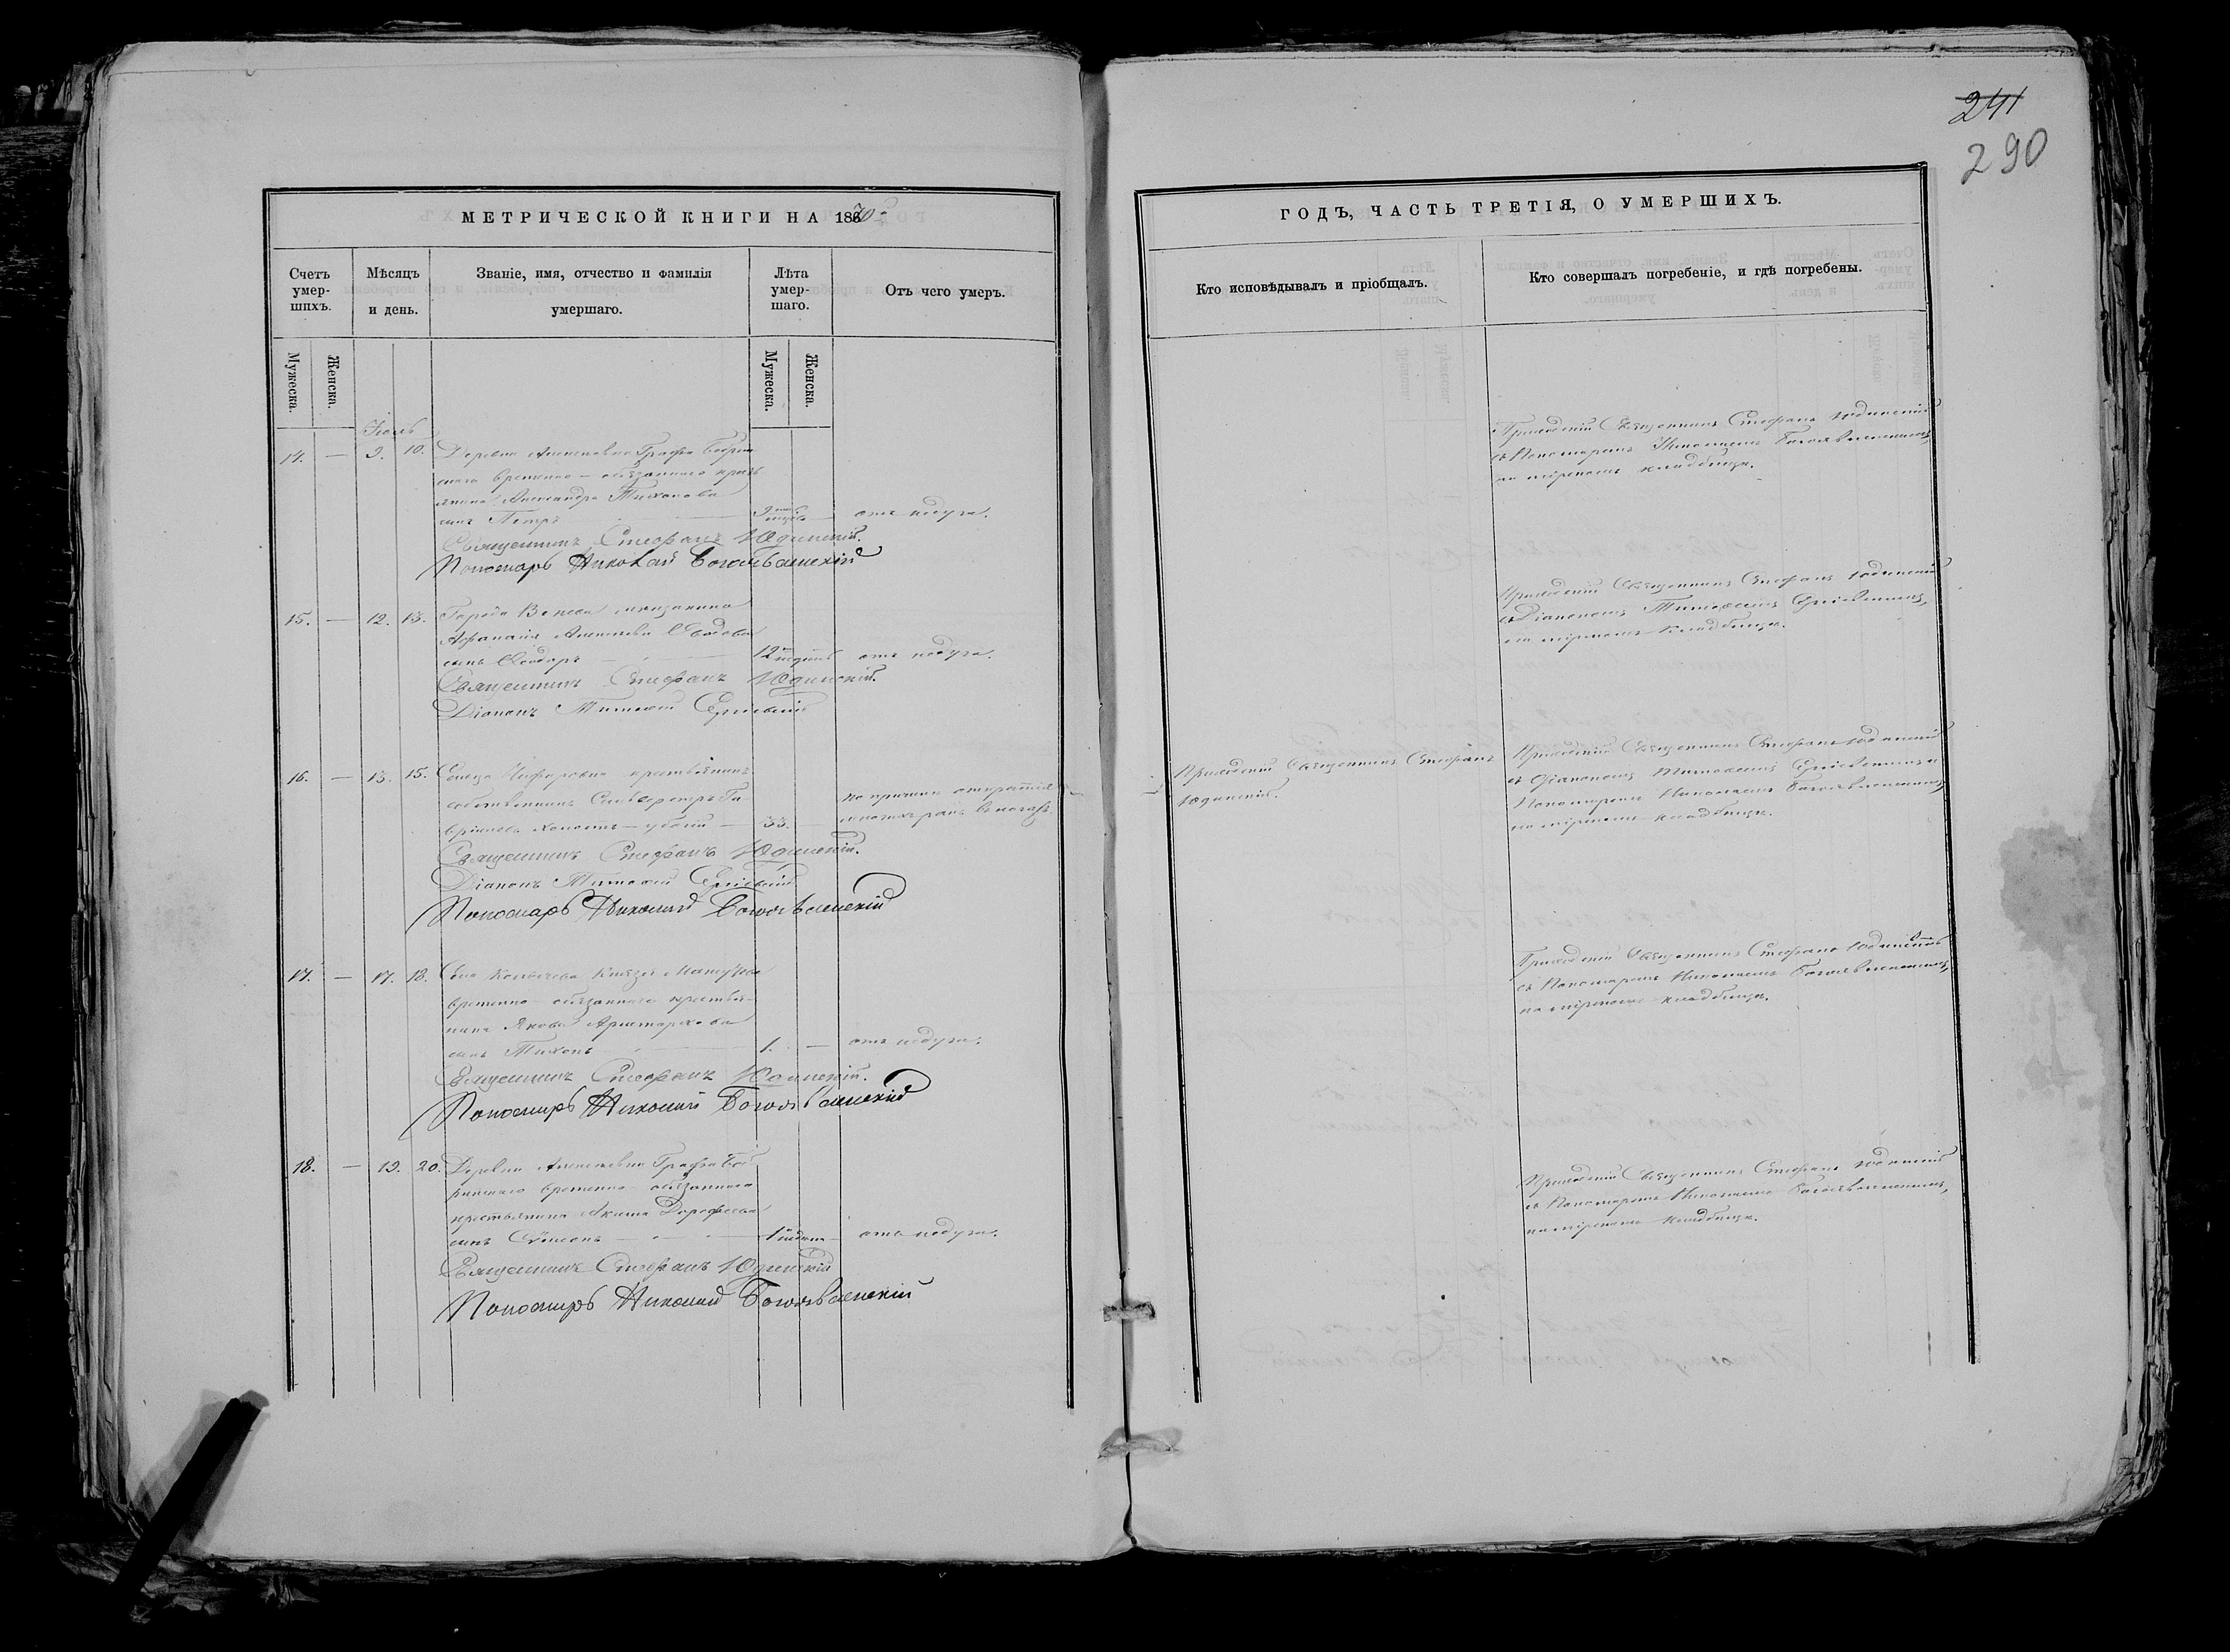 241
290
МЕТРИЧЕСКОЙ КНИГИ НА 1870
Счетъ умер-шихъ.
Мѣсяцъ и день.
Званіе, имя, отчество и фамилія умершаго.
Лѣта умер-шаго.
Отъ чего умеръ.
Мужеска.
Женска.
Мужеска.
Женска.
14. — 9. 10. Деревни Алексѣевки Графа Бобрин
скаго временно-обязаннаго кресть
янина Александра Тихонова
сынъ Петръ — отъ недуга.
Священникъ Стефанъ Юдинскій.
Пономарь Николай Богоявленскій
15. — 12. 13. Города Венева мѣщанина
сынъ Ѳеодоръ — 12 отъ недуга.
Священникъ Стефанъ Юдинскій.
Діаконъ Тимоѳей
16. — 13. 15. Сельца крестьянинъ
собственникъ Сильвестръ Га
вріиловъ холостъ — — 33. —
по причинѣ открытія
многихъ ранъ въ ногахъ.
Священникъ Стефанъ Юдинскій.
Діаконъ Тимоѳей
Пономарь Николай Богоявленскій
17. — 17. 18. Села Князя
временно-обязаннаго крестья-
нина Якова Аристархова
сынъ Тихонъ — 1. — отъ недуга.
Священникъ Стефанъ Юдинскій.
Пономарь Николай Богоявленскій
18. — 19. 20. Деревни Алексѣевки Графа Боб
ринскаго временно-обязаннаго
крестьянина Акима Дороѳеева
сынъ Сѵмеонъ — отъ недуга.
Священникъ Стефанъ Юдинскій
Пономарь Николай Богоявленскій
ГОДЪ, ЧАСТЬ ТРЕТІЯ, О УМЕРШИХЪ.
Кто исповѣдывалъ и пріобщалъ.
Кто совершалъ погребеніе, и гдѣ погребены.
Приходскій Священникъ Стефанъ Юдинскій
съ Пономаремъ Николаемъ Богоявленскимъ,
на мірскомъ кладбищѣ.
Приходскій Священникъ Стефанъ Юдинскій
съ Діакономъ Тимоѳеемъ
на мірскомъ кладбищѣ.
Приходскій Священникъ Стефанъ
Юдинскій.
Приходскій Священникъ Стефанъ Юдинскій
съ Діакономъ Тимоѳеемъ и
Пономаремъ Николаемъ Богоявленскимъ,
на мірскомъ кладбищѣ.
Приходскій Священникъ Стефанъ Юдинскій
съ Пономаремъ Николаемъ Богоявленскимъ,
на мірскомъ кладбищѣ.
Приходскій Священникъ Стефанъ Юдинскій
съ Пономаремъ Николаемъ Богоявленскимъ,
на мірскомъ кладбищѣ.